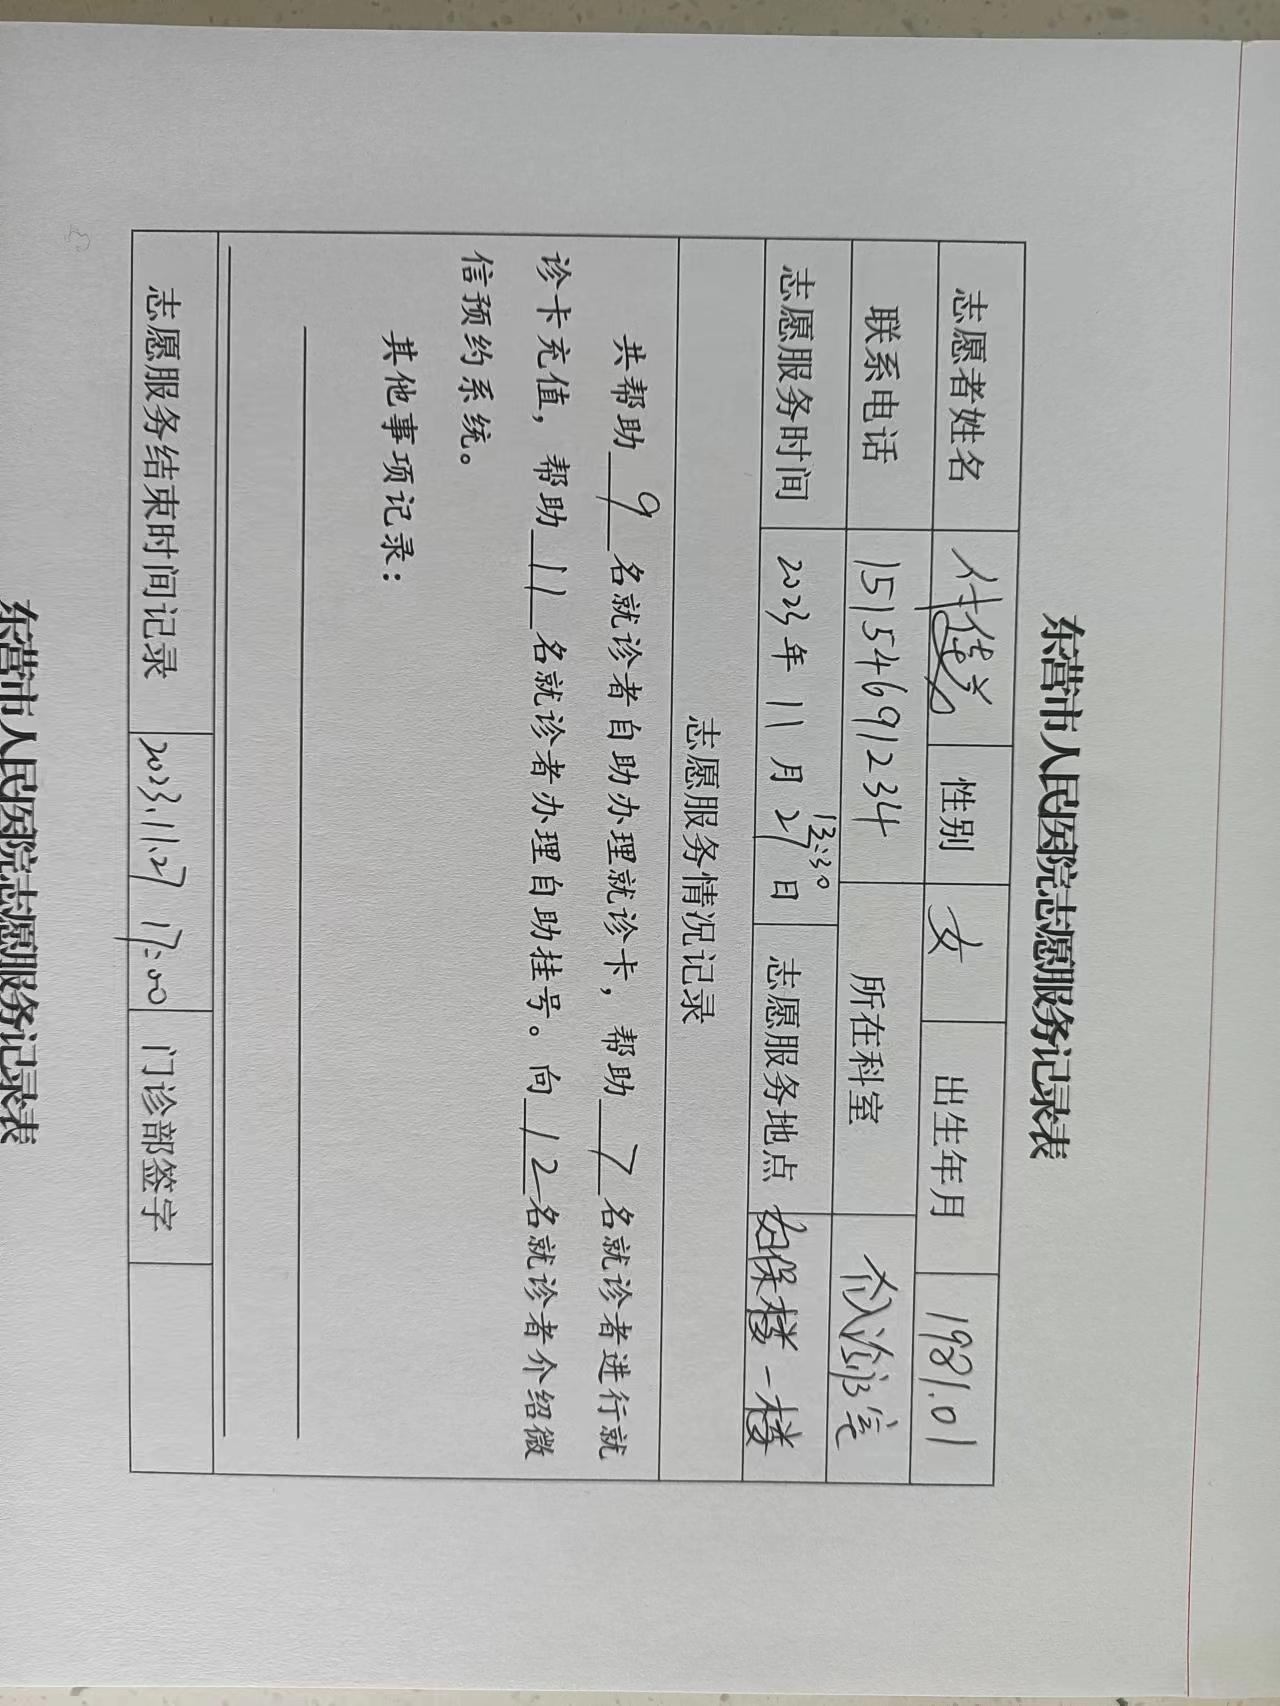 东营市人民医院志愿服务记录表
志愿者姓名 性别 女 出生年月 1981.01
联系电话 15154691234 所在科室
志愿服务时间 2023年11月27日 13:30 志愿服务地点 妇保楼一楼
志愿服务情况记录
共帮助 9 名就诊者自助办理就诊卡，帮助 7 名就诊者进行就
诊卡充值，帮助 11 名就诊者办理自助挂号。向 12 名就诊者介绍微
信预约系统。
其他事项记录：
志愿服务结束时间记录 2023.11.27 17:00 门诊部签字
东营市人民医院志愿服务记录表